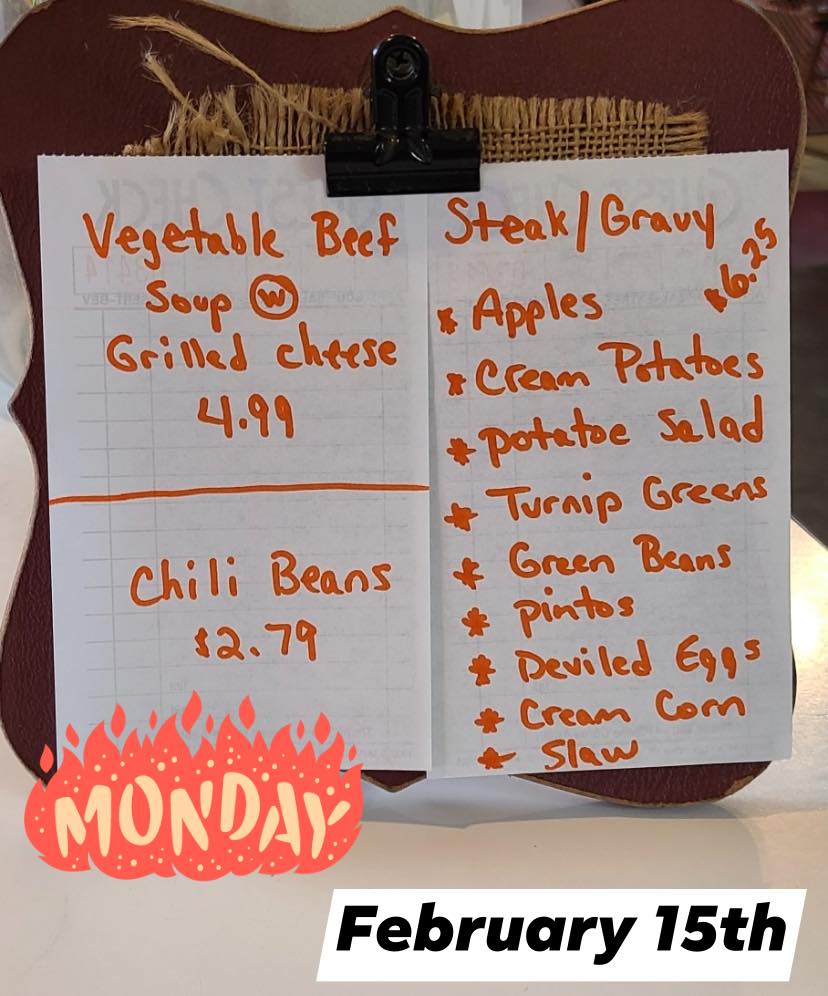 Vegetable Beef
Soup W
Grilled cheese
4.99
Chili Beans
$2.79
Steak/Gravy
$6.25
* Apples
* Cream Potatoes
* potatoe Salad
* Turnip Greens
* Green Beans
* pintos
* Deviled Eggs
* Cream Corn
* Slaw
MONDAY
February 15th